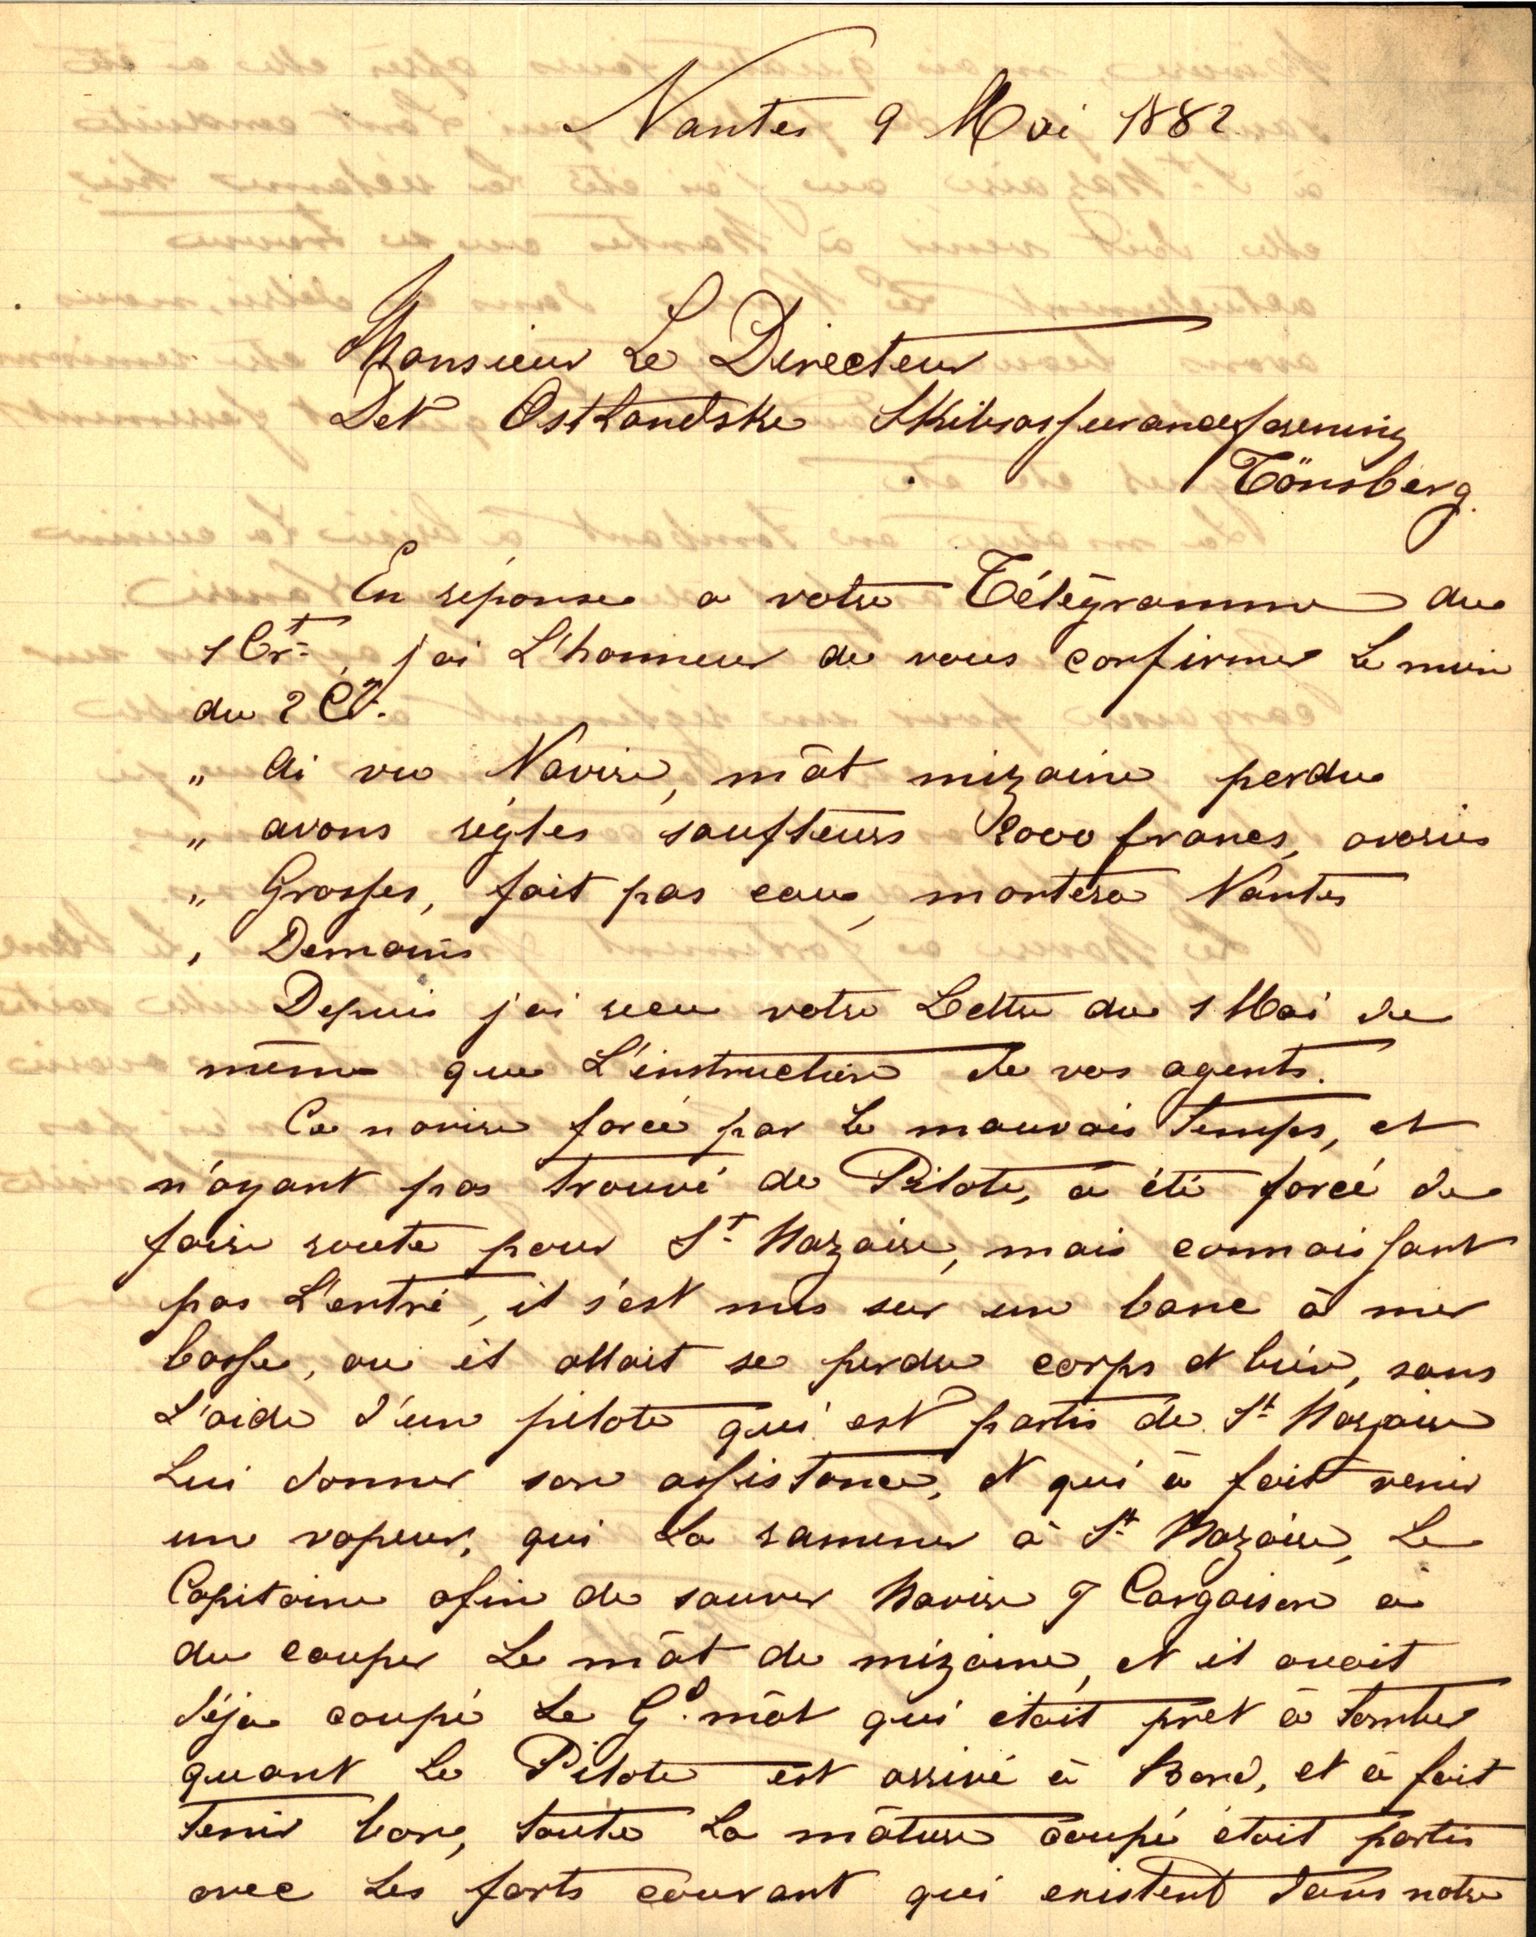 Nantes 9 Mai 1882
Monsieur Le Directeur
Det Ostlandske Skibsassuranceforening
Tönsberg.
En réponse a votre Télégramme du
1 Crt, j'ai L'honneur de vous confirmer Le mien
du 2 Ct.
„ Ai vu Navire, mât mizaine perdu
„ avons réglés saufteurs 2000 francs, avaries
„ Grosses, fait pas eau, montera Nantes
, Demain
Depuis j'ai recu votre Lettre du 1 Mai de
même que L'instruction de vos agents.
Ce navire forcé par Le mauvais Temps, et
n'ayant pas trouvé de Pilote, a été forcé de
faire route pour St Nazaire, mais connaissant
pas L'entré, il s'est mis sur un banc à mer
basse, ou il allait se perdre corps et bien, sans
L'aide d'un pilote qui est partis de St Nazaire
Lui donner son assistance, et qui à fait venir
un vapeur, qui La ramener à St Nazaire, Le
Capitaine afin de sauver Navire & Cargaison à
du couper Le mât de mizaine, et il avait
déja coupé Le Gd mât qui était prêt à tomber
quant Le Pilote est arrivé à Bord, et à fait
tenir bon, toute La mâture coupé était partis
avec Les forts courant qui existent dans notre